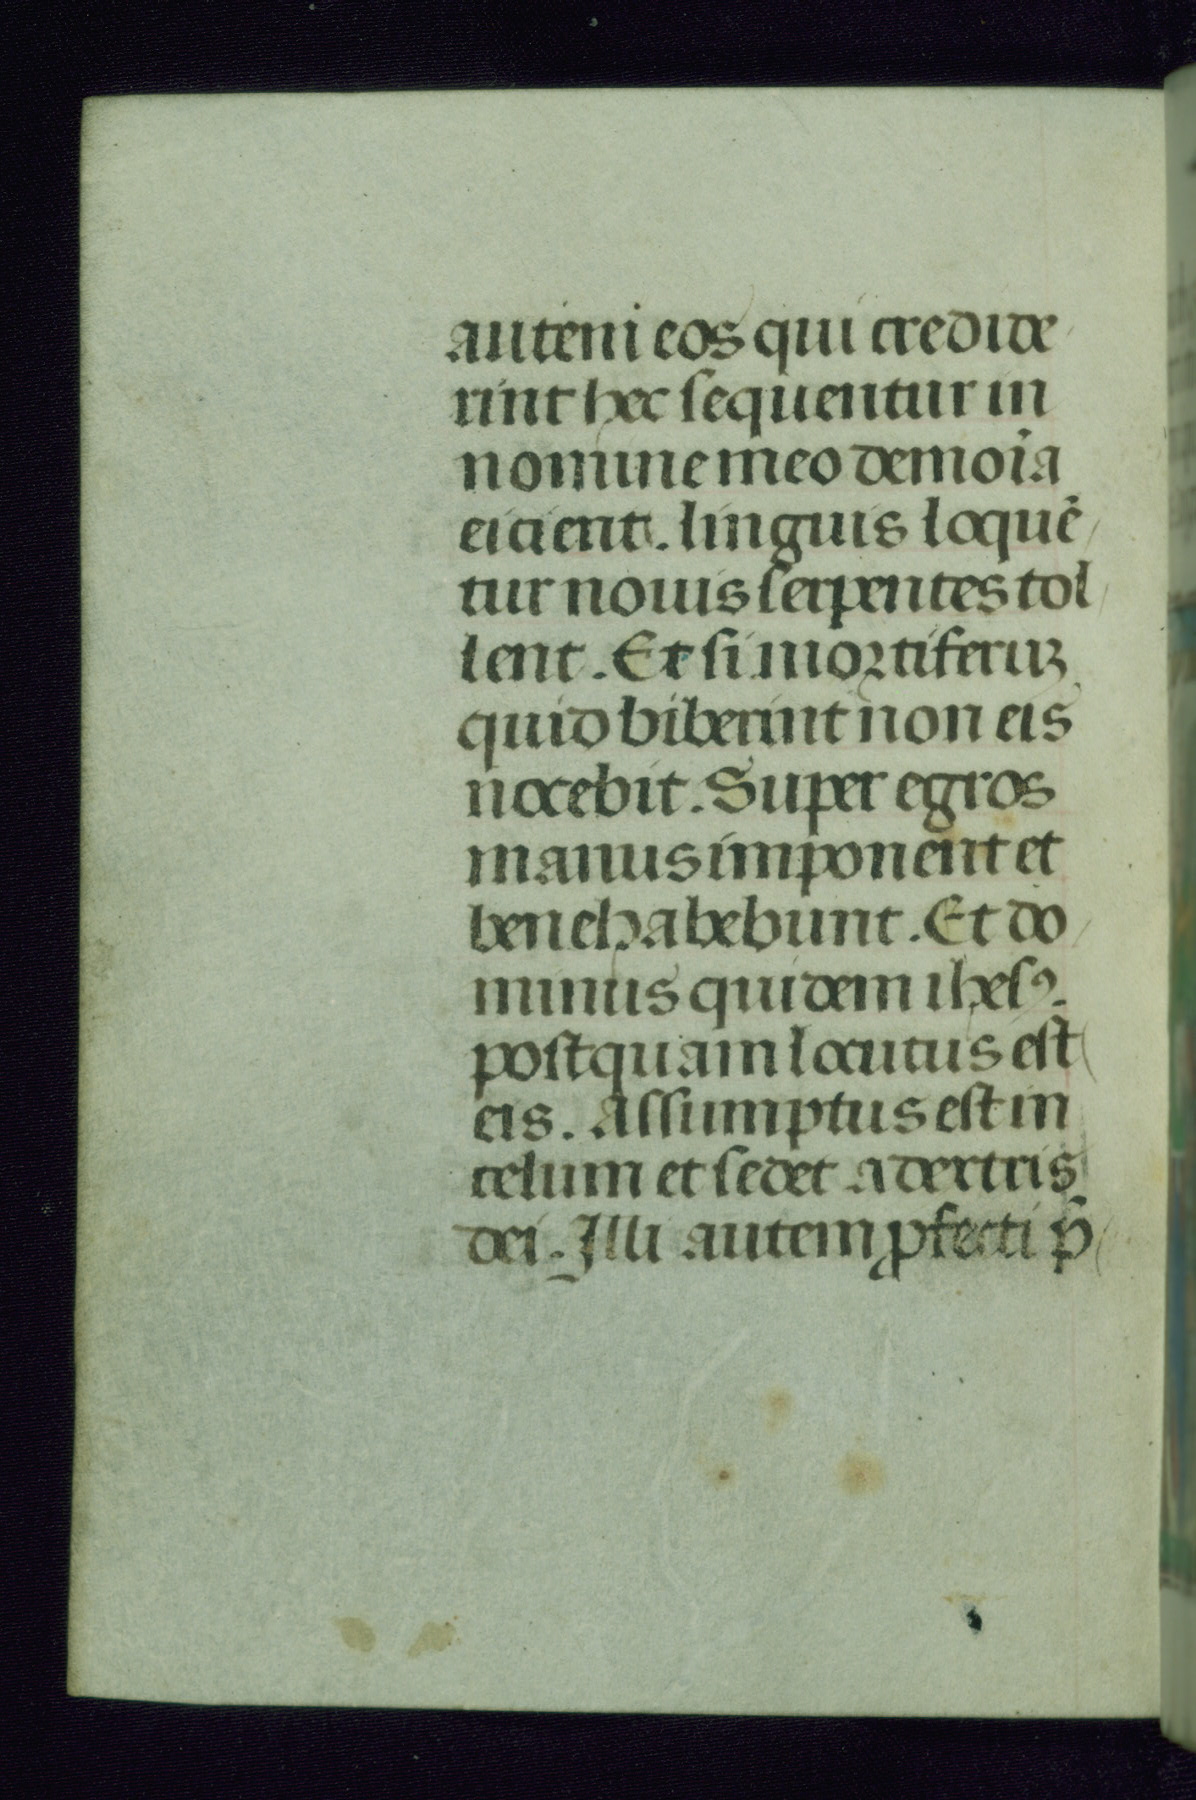 autem eos qui credide
rint hec sequentur in
nomine meo demoīa
eicient. linguis loquē
tur nouis serpentes tol
lent. Et si mortiferuꝫ
quid biberint non eis
nocebit. Super egros
manus imponent et
bene habebunt. Et do
minus quidem ihesꝰ
postquam locutus est
eis. Assumptus est in
celum et sedet a dextris
dei. Illi autem ꝓfecti p̄